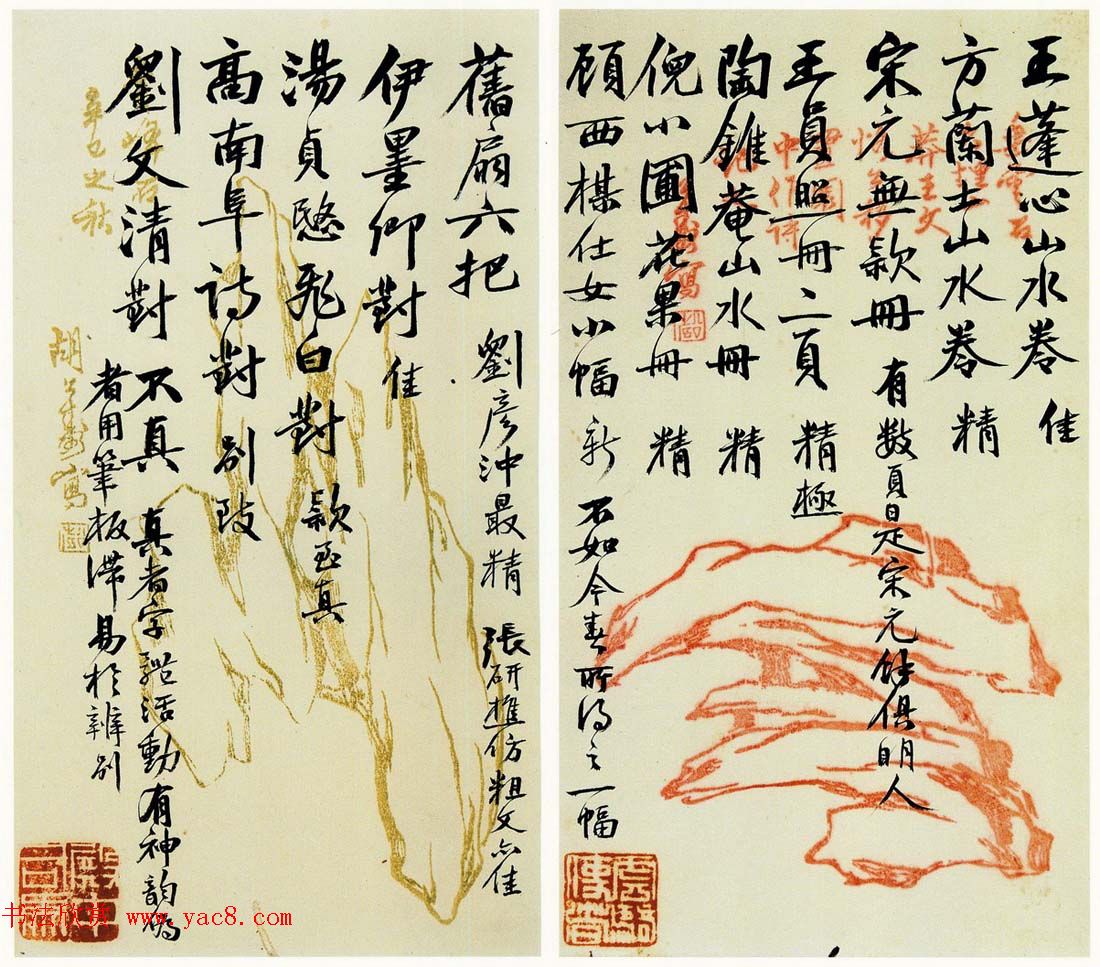 王蓬心山水卷 佳
方蘭士山水卷 精
宋元無款冊 有数頁是宋元餘俱明人
王員照冊二頁 精極
陶錐菴山水冊 精
倪小圃花果冊 精
顾西楳仕女小幅 新 不如今春所得之一幅
舊扇六把 劉彦沖最精 張研樵仿粗文亦佳
伊墨卿對 佳
湯貞愍飛白對 款至真
高南阜詩對 別致
劉文清對 不真 真者字跡活動有神韵偽
者用筆板滯易於辨别
辛巳之秋
书法欣赏 www.yac8.com